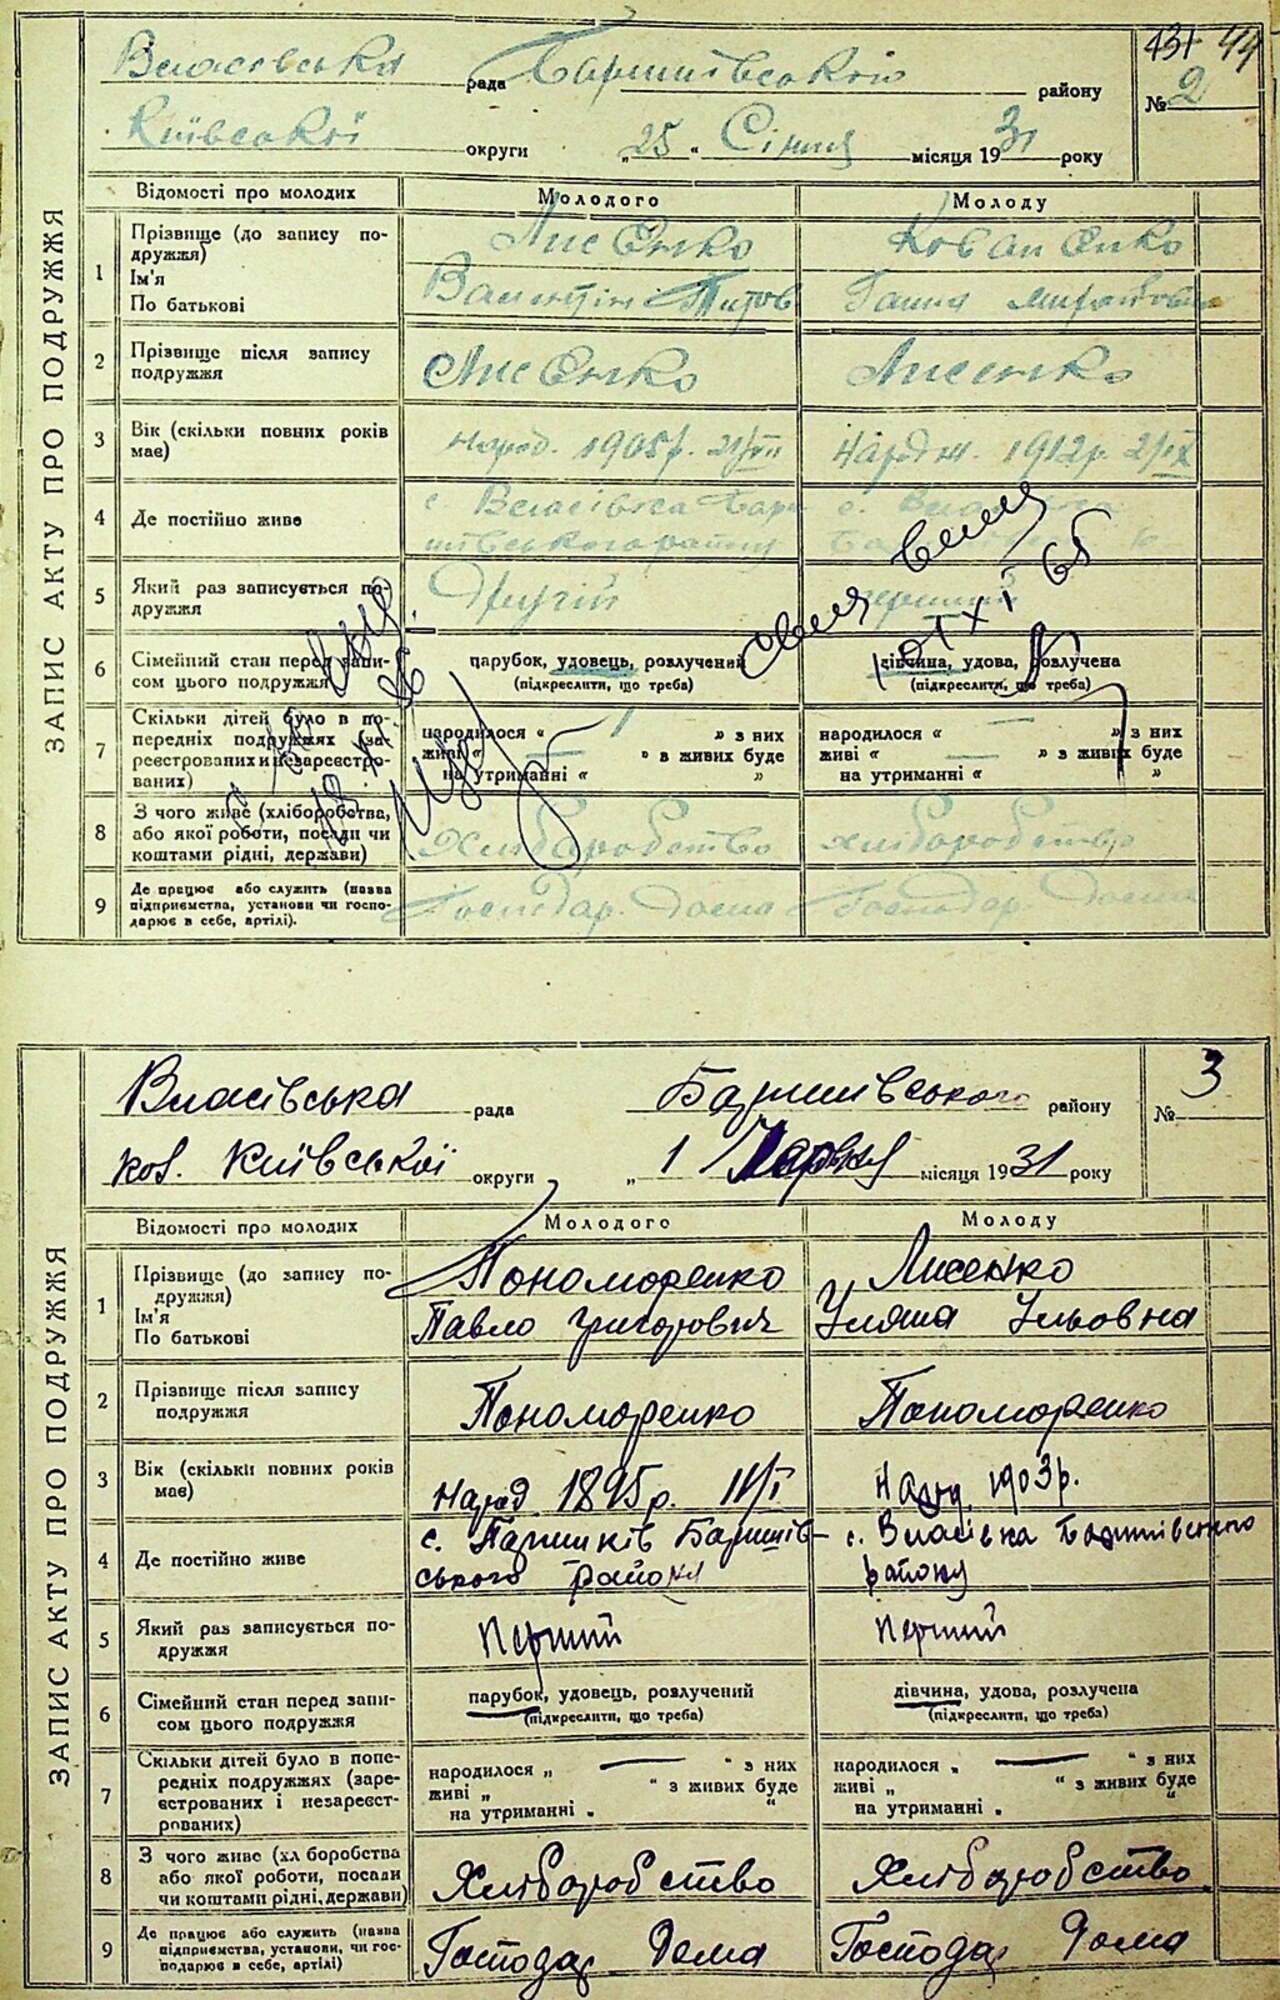 131 44
Власівська рада Баришівської району
№ 2
Київської округи „25“ Січня місяця 1931 року
ЗАПИС АКТУ ПРО ПОДРУЖЖЯ
Відомості про молодих Молодого Молоду
1 Прізвище (до запису по-
дружжя)
Лисенко Коваленко
Ім'я
По батькові
Валентін Титов Ганна
2 Прізвище після запису
подружжя
Лисенко Лисенко
3 Вік (скільки повних років
має)
Народ. 1905р. 21/VII Нардж. 1912р. 2/IX
4 Де постійно живе
с. Власівка Бари с. Власівка
шівського району
5 Який раз записується по-
дружжя
Другий перший
6 Сімейний стан перед запи-
сом цього подружжя
парубок, удовець, розлучений дівчина, удова, розлучена
(підкреслити, що треба) (підкреслити, що треба)
7 Скільки дітей було в по-
передніх подружжях (за-
реєстрованих и незареєстро-
ваних)
народилося « 1 » з них народилося « — » з них
живі « — » в живих буде живі « — » з живих буде
на утриманні « » на утриманні « »
8 З чого живе (хліборобства,
або якої роботи, посади чи
коштами рідні, держави)
Хліборобство хліборобство
9 Де працює або служить (назва
підприємства, установи чи госпо-
дарює в себе, артілі).
Господар. Дома Господар. Дома
ЗАПИС АКТУ ПРО ПОДРУЖЖЯ
Власівська рада Баришівського району
№ 3
Київської округи „ 1 місяця 1931 року
Відомості про молодих Молодого Молоду
1 Прізвище (до запису по-
дружжя)
Пономоренко Лисенко
Ім'я
По батькові
Павло Григорович Уляна Ульовна
2 Прізвище після запису
подружжя
Пономоренко Пономоренко
3 Вік (скільки повних років
має)
Народ 1895р. Народ. 1903р.
4 Де постійно живе
с. Паришків Баришів- с. Власівка Баришівського
ського району району
5 Який раз записується по-
дружжя
перший перший
6 Сімейний стан перед запи-
сом цього подружжя
парубок, удовець, розлучений дівчина, удова, розлучена
(підкреслити, що треба) (підкреслити, що треба)
7 Скільки дітей було в попе-
редніх подружжях (заре-
єстрованих і незареєст-
рованих)
народилося „ — “ з них народилося „ — “ з них
живі „ “ з живих буде живі „ “ з живих буде
на утриманні „ “ на утриманні „ “
8 З чого живе (хл боробства
або якої роботи, посади
чи коштами рідні, держави)
Хліборобство Хліборобство
9 Де працює або служить (назва
підприємства, установи, чи гос-
подарює в себе, артілі)
Господар Дома Господар Дома